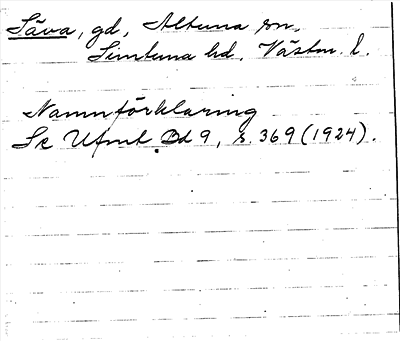 Säva, gd, Altuna sn.
Simtuna hd. Västm. l.
Namnförklaring
Se Ufmt Bd 9, s. 369 (1924).